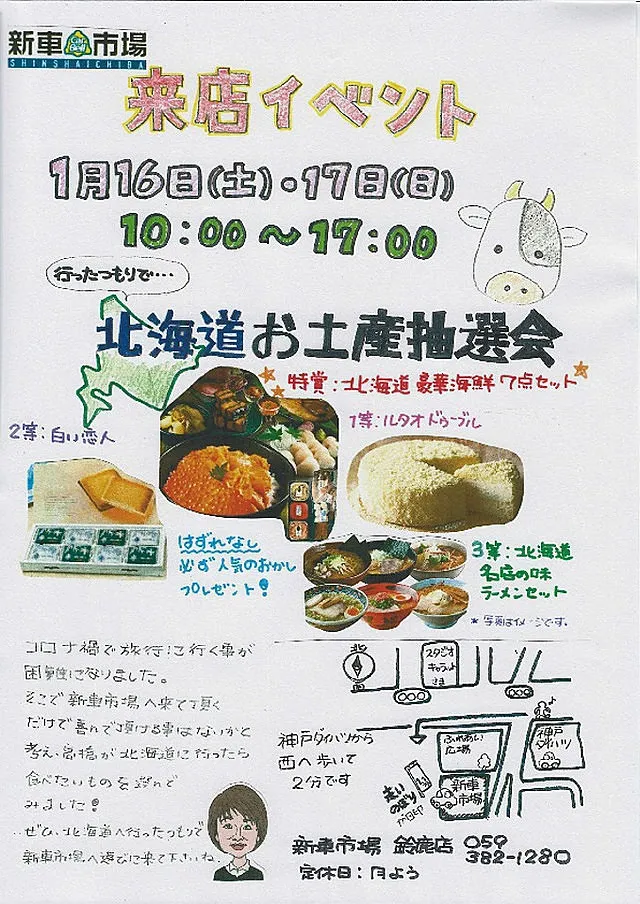 新車 Car Bell 市場
SHINSHAICHIBA
来店イベント
1月16日(土)・17日(日)
10:00～17:00
行ったつもりで…
北海道お土産抽選会
特賞：北海道 豪華海鮮 7点セット
1等：ルタオ ドゥーブル
2等：白い恋人
はずれなし
必ず人気のおかし
プレゼント！
3等：北海道
名店の味
ラーメンセット
＊写真はイメージです。
コロナ禍で旅行に行く事が
困難になりました。
そこで新車市場へ来て頂く
だけで喜んで頂ける事はないかと
考え、高橋が北海道に行ったら
食べたいものを選んで
みました！
ぜひ、北海道へ行ったつもりで
新車市場へ遊びに来て下さいね
北
スタジオ
キャラット
さま
神戸ダイハツから
西へ歩いて
2分です
ふれあい
広場
神戸
ダイハツ
新車
市場
赤いのぼり
が目印
新車市場 鈴鹿店 059
382-1280
定休日：月よう